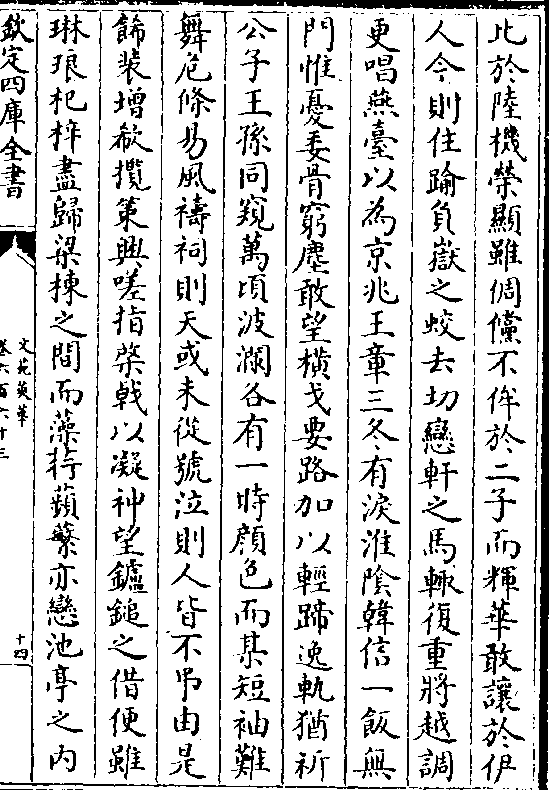 比於陸機榮顯雖倜儻不侔於二子而輝華敢讓於伊
人今則住踰負嶽之蛟去切戀軒之馬輙復重將越調
更唱燕臺以為京兆王章三冬有淚淮陰韓信一飯無
門惟憂委骨窮塵敢望橫戈要路加以輕蹄逸軌猶祈
公子王孫同窺萬頃波瀾各有一時顔色而某短袖難
舞危條易風禱祠則天或未從號泣則人皆不弔由是
飾裝增欷攬策興嗟指棨㦸以凝神望鑪鎚之借便雖
琳琅杞梓盡歸梁棟之間而藻荇蘋蘩亦戀池亭之内
欽定四庫全書
文苑英華
卷六百六十三
十四